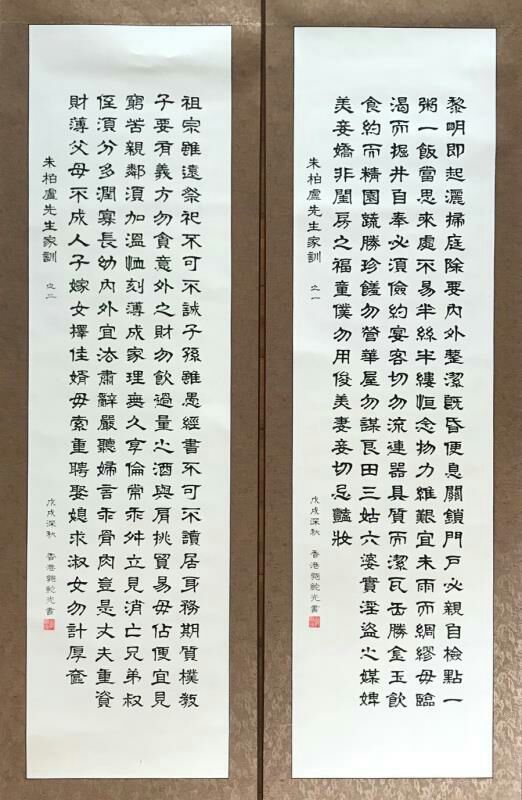 黎明即起灑掃庭除要內外整潔既昏便息關鎖門戶必親自檢點一
粥一飯當思來處不易半絲半縷恒念物力維艱宜未雨而綢繆毋臨
渴而掘井自奉必須儉約宴客切勿流連器具質而潔瓦缶勝金玉飲
食約而精園蔬勝珍饈勿營華屋勿謀良田三姑六婆實淫盜之媒婢
美妾嬌非閨房之福童僕勿用俊美妻妾切忌豔妝
朱柏盧先生家訓 之一
戊戌深秋 香港 光書
祖宗雖遠祭祀不可不誠子孫雖愚經書不可不讀居身務期質樸教
子要有義方勿貪意外之財勿飲過量之酒與肩挑貿易毋佔便宜見
窮苦親鄰須加溫恤刻薄成家理無久享倫常乖舛立見消亡兄弟叔
侄須分多潤寡長幼內外宜法肅辭嚴聽婦言乖骨肉豈是丈夫重資
財薄父母不成人子嫁女擇佳婿毋索重聘娶媳求淑女勿計厚奩
朱柏盧先生家訓 之二
戊戌深秋 香港 光書